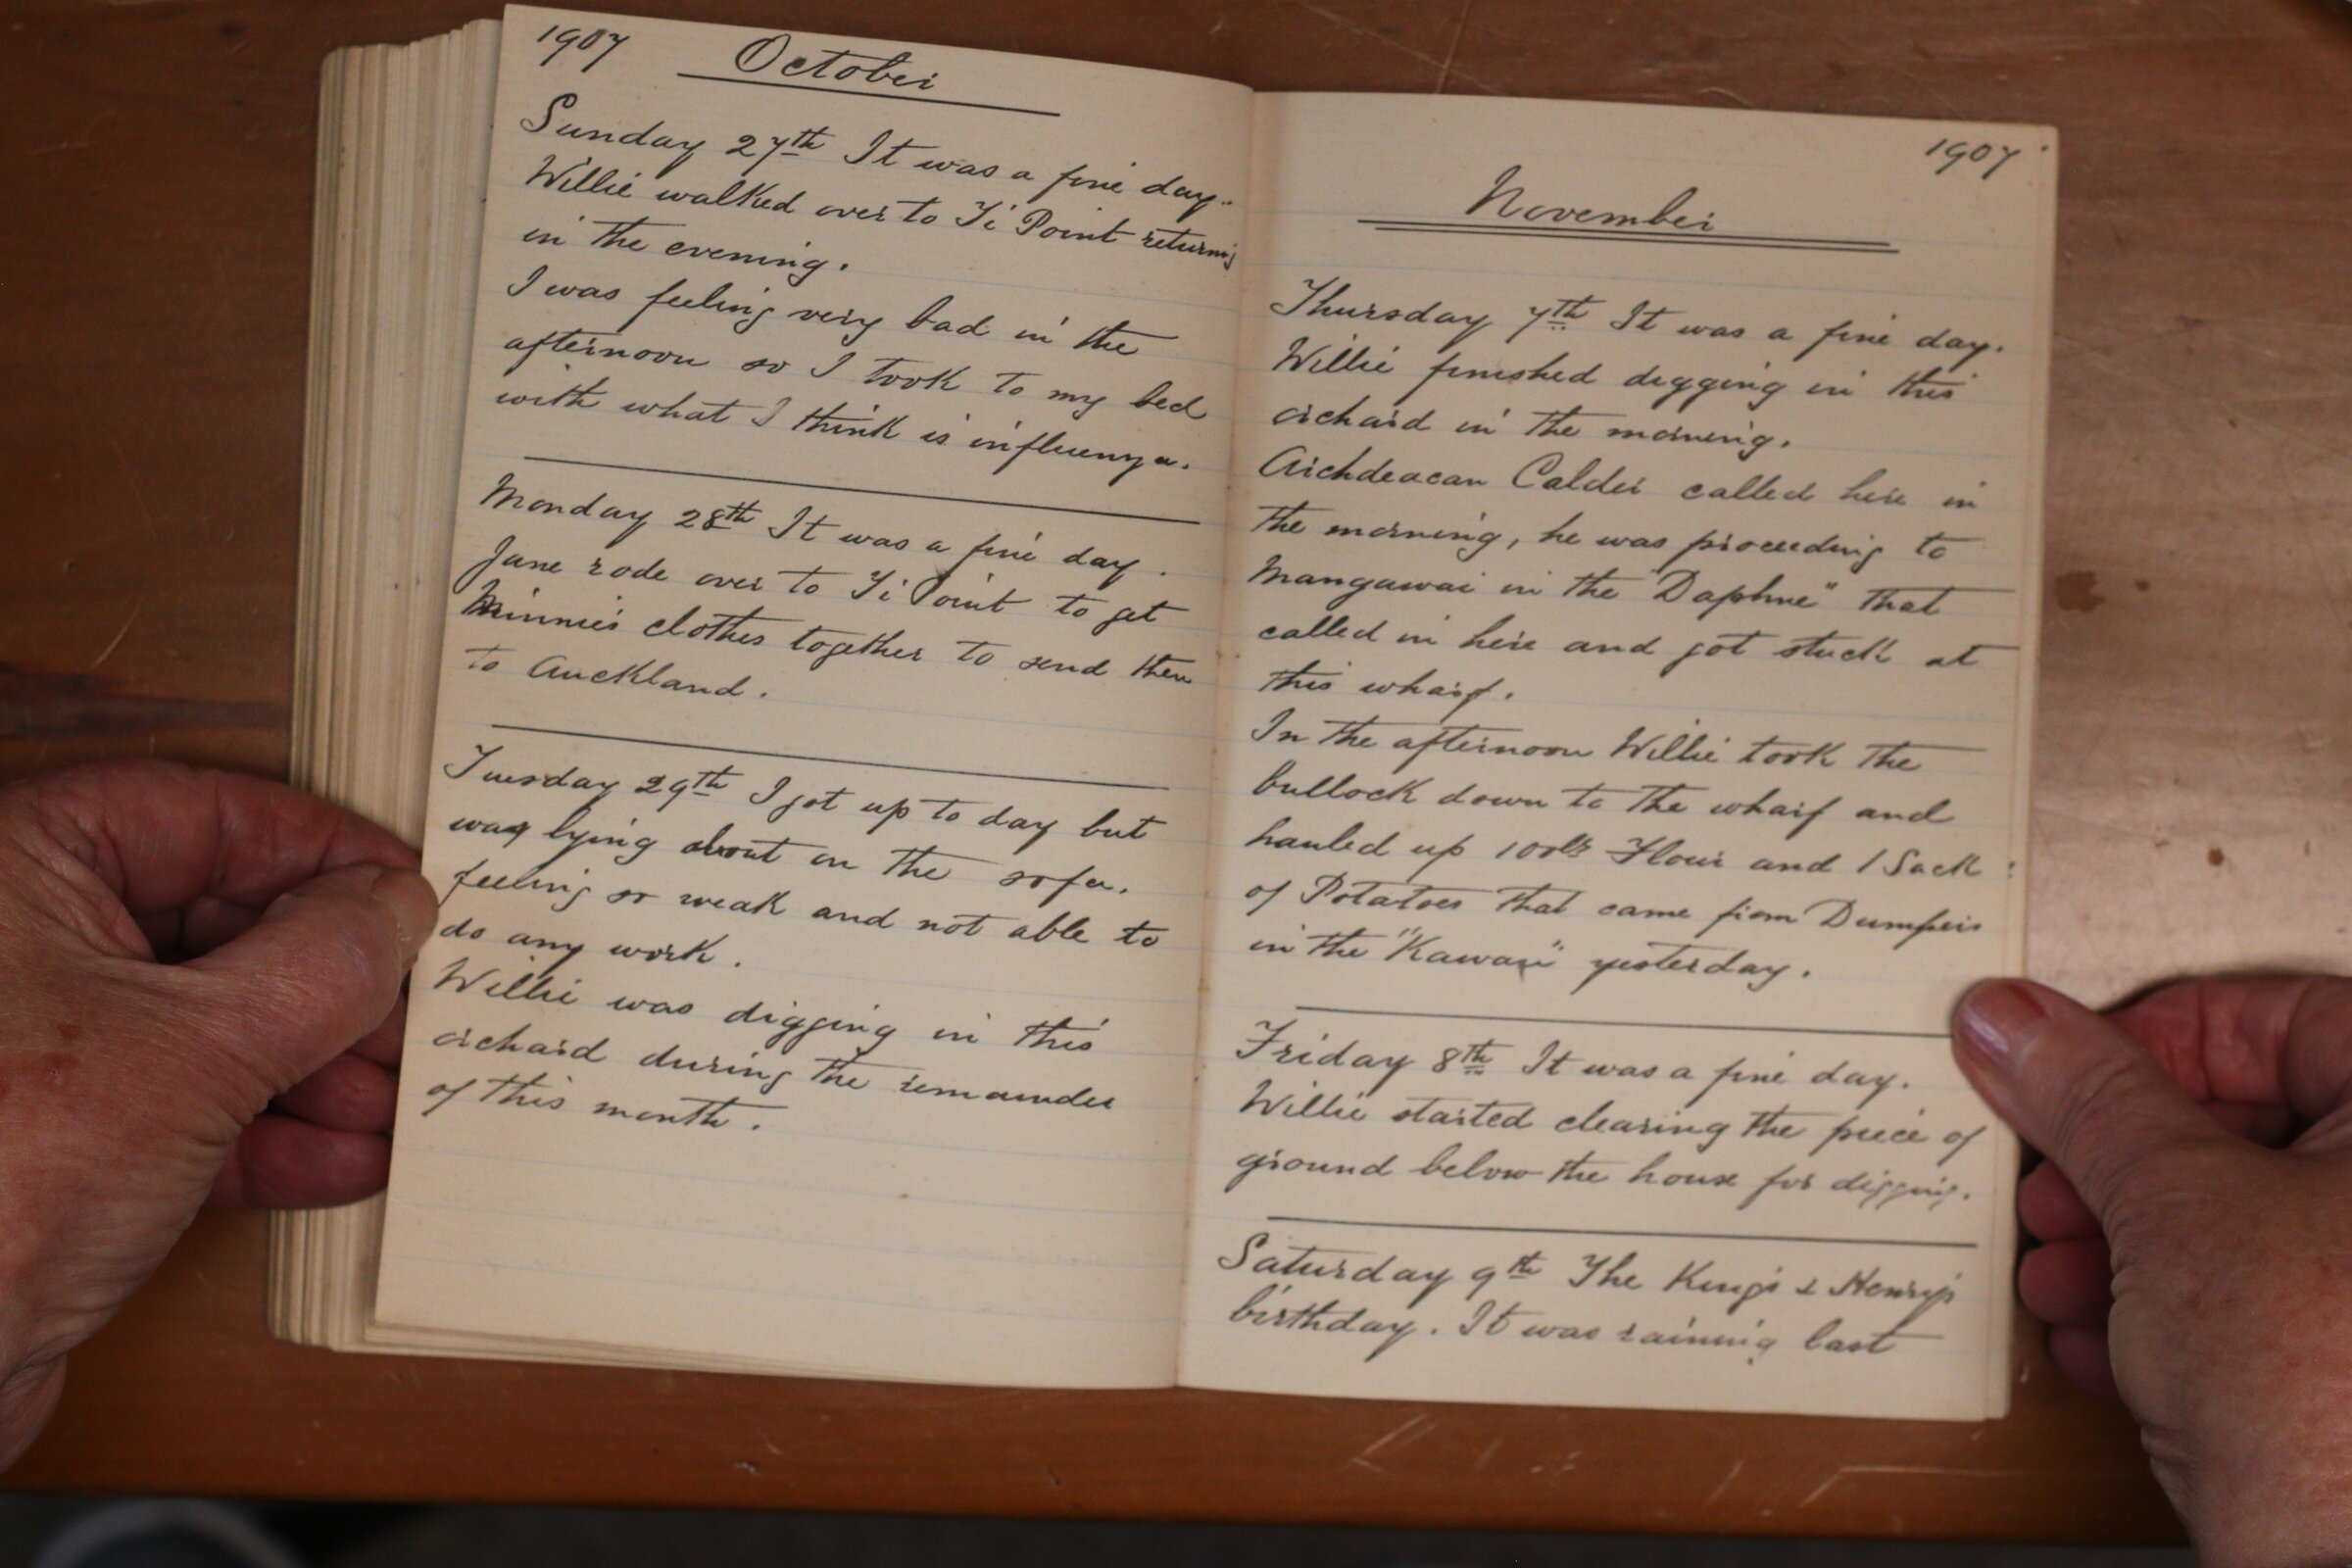 1907 October
Sunday 27th It was a fine day.
Willie walked over to Ti Point returning
in the evening.
I was feeling very bad in the
afternoon so I took to my bed
with what I think is influenza.
Monday 28th It was a fine day.
Jane rode over to Ti Point to get
Minnie's clothes together to send them
to Auckland.
Tuesday 29th I got up to day but
was lying about on the sofa.
feeling so weak and not able to
do any work.
Willie was digging in this
orchard during the remainder
of this month.
1907
November
Thursday 7th It was a fine day.
Willie finished digging in this
orchard in the morning.
Archdeacan Calder called here in
the morning, he was proceeding to
Mangawai in the "Daphne" that
called in here and got stuck at
this wharf.
In the afternoon Willie took the
bullock down to the wharf and
hauled up 100lbs Flour and 1 Sack
of Potatoes that came from Dumpers
in the "Kawau" yesterday.
Friday 8th It was a fine day.
Willie started clearing the piece of
ground below the house for digging.
Saturday 9th The King's & Henry's
birthday. It was raining last